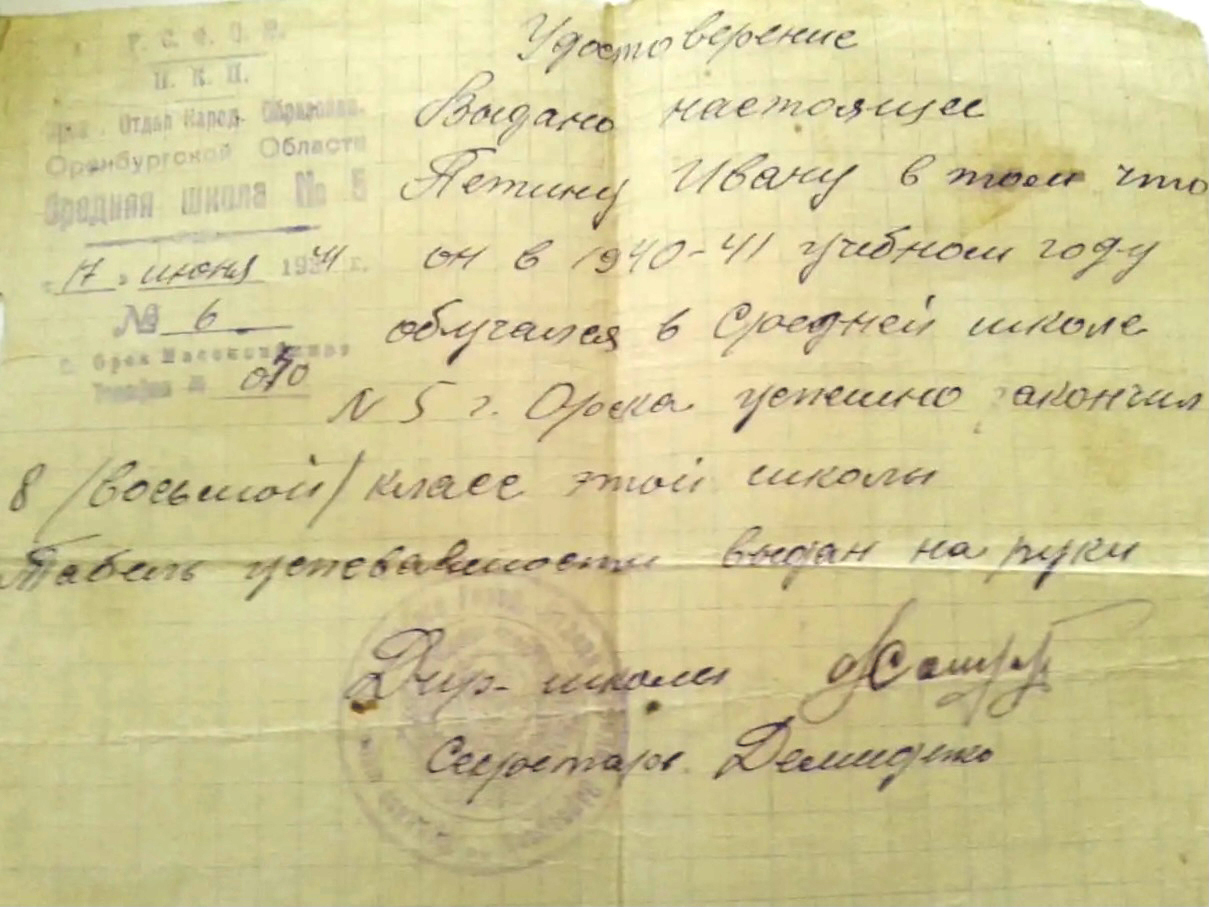 Р. С. Ф. С. Р.
Н. К. П.
Отдел Народ. Образован.
Оренбургской Области
Средняя школа № 5
"17" июня 1941 г.
№ 6
г. Орск
Телефон № 070
Удостоверение
Выдано настоящее
Петину Ивану в том что
он в 1940-41 учебном году
обучался в Средней школе
N 5 г. Орска успешно закончил
8 /восьмой/ класс этой школы
Табель успеваемости выдан на руки
Дир- школы
Секретарь